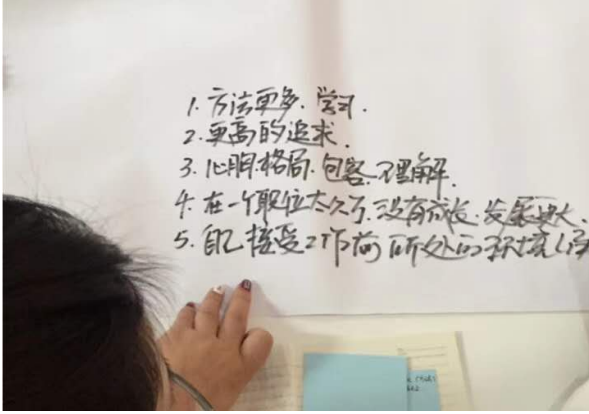 1. 方法更多. 学习.
2. 更高的追求.
3. 心胸. 格局. 包容. 理解.
4. 在一个职位太久了. 没有成长. 发展
5. 自己接受工作前所处的环境